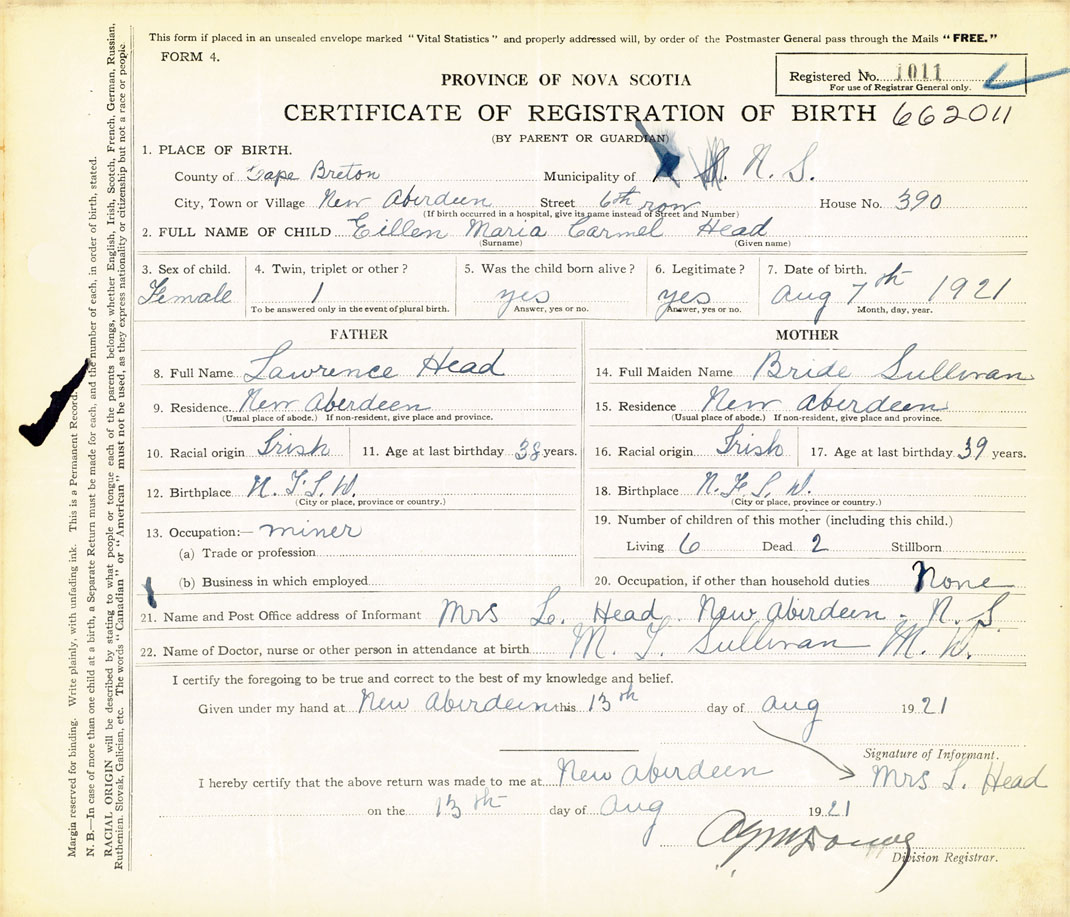 This form if placed in an unsealed envelope marked "Vital Statistics" and properly addressed will, by order of the Postmaster General pass through the Mails "FREE."
FORM 4.
Registered No. 1011
For use of Registrar General only.
PROVINCE OF NOVA SCOTIA
CERTIFICATE OF REGISTRATION OF BIRTH 662011
(BY PARENT OR GUARDIAN)
1. PLACE OF BIRTH.
County of Cape Breton Municipality of N. S.
City, Town or Village New Aberdeen Street 6th row House No. 390
(If birth occurred in a hospital, give its name instead of Street and Number)
2. FULL NAME OF CHILD Eillen Maria Carmel Head
(Surname) (Given name)
3. Sex of child. 4. Twin, triplet or other? 5. Was the child born alive? 6. Legitimate? 7. Date of birth.
Female 1 yes yes Aug 7th 1921
To be answered only in the event of plural birth. Answer, yes or no. Answer, yes or no. Month, day, year.
FATHER
8. Full Name Lawrence Head
9. Residence New Aberdeen
(Usual place of abode.) If non-resident, give place and province.
10. Racial origin Irish 11. Age at last birthday 38 years.
12. Birthplace N. F. L. D.
(City or place, province or country.)
13. Occupation:— miner
(a) Trade or profession
(b) Business in which employed
MOTHER
14. Full Maiden Name Bride Sullivan
15. Residence New Aberdeen
(Usual place of abode.) If non-resident, give place and province.
16. Racial origin Irish 17. Age at last birthday 39 years.
18. Birthplace N. F. L. D.
(City or place, province or country.)
19. Number of children of this mother (including this child.)
Living 6 Dead 2 Stillborn
20. Occupation, if other than household duties None
21. Name and Post Office address of Informant Mrs L. Head New Aberdeen - N. S.
22. Name of Doctor, nurse or other person in attendance at birth M. T. Sullivan M. D.
I certify the foregoing to be true and correct to the best of my knowledge and belief.
Given under my hand at New Aberdeen this 13th day of Aug 1921
Signature of Informant.
I hereby certify that the above return was made to me at New Aberdeen Mrs L. Head
on the 13th day of Aug 1921
Division Registrar.
Margin reserved for binding. Write plainly, with unfading ink. This is a Permanent Record.
N. B.—In case of more than one child at a birth, a Separate Return must be made for each, and the number of each, in order of birth, stated.
RACIAL ORIGIN will be described by stating to what people or tongue each of the parents belongs, whether English, Irish, Scotch, French, German, Russian,
Ruthenian. Slovak, Galician, etc. The words "Canadian" or "American" must not be used, as they express nationality or citizenship but not a race or people.